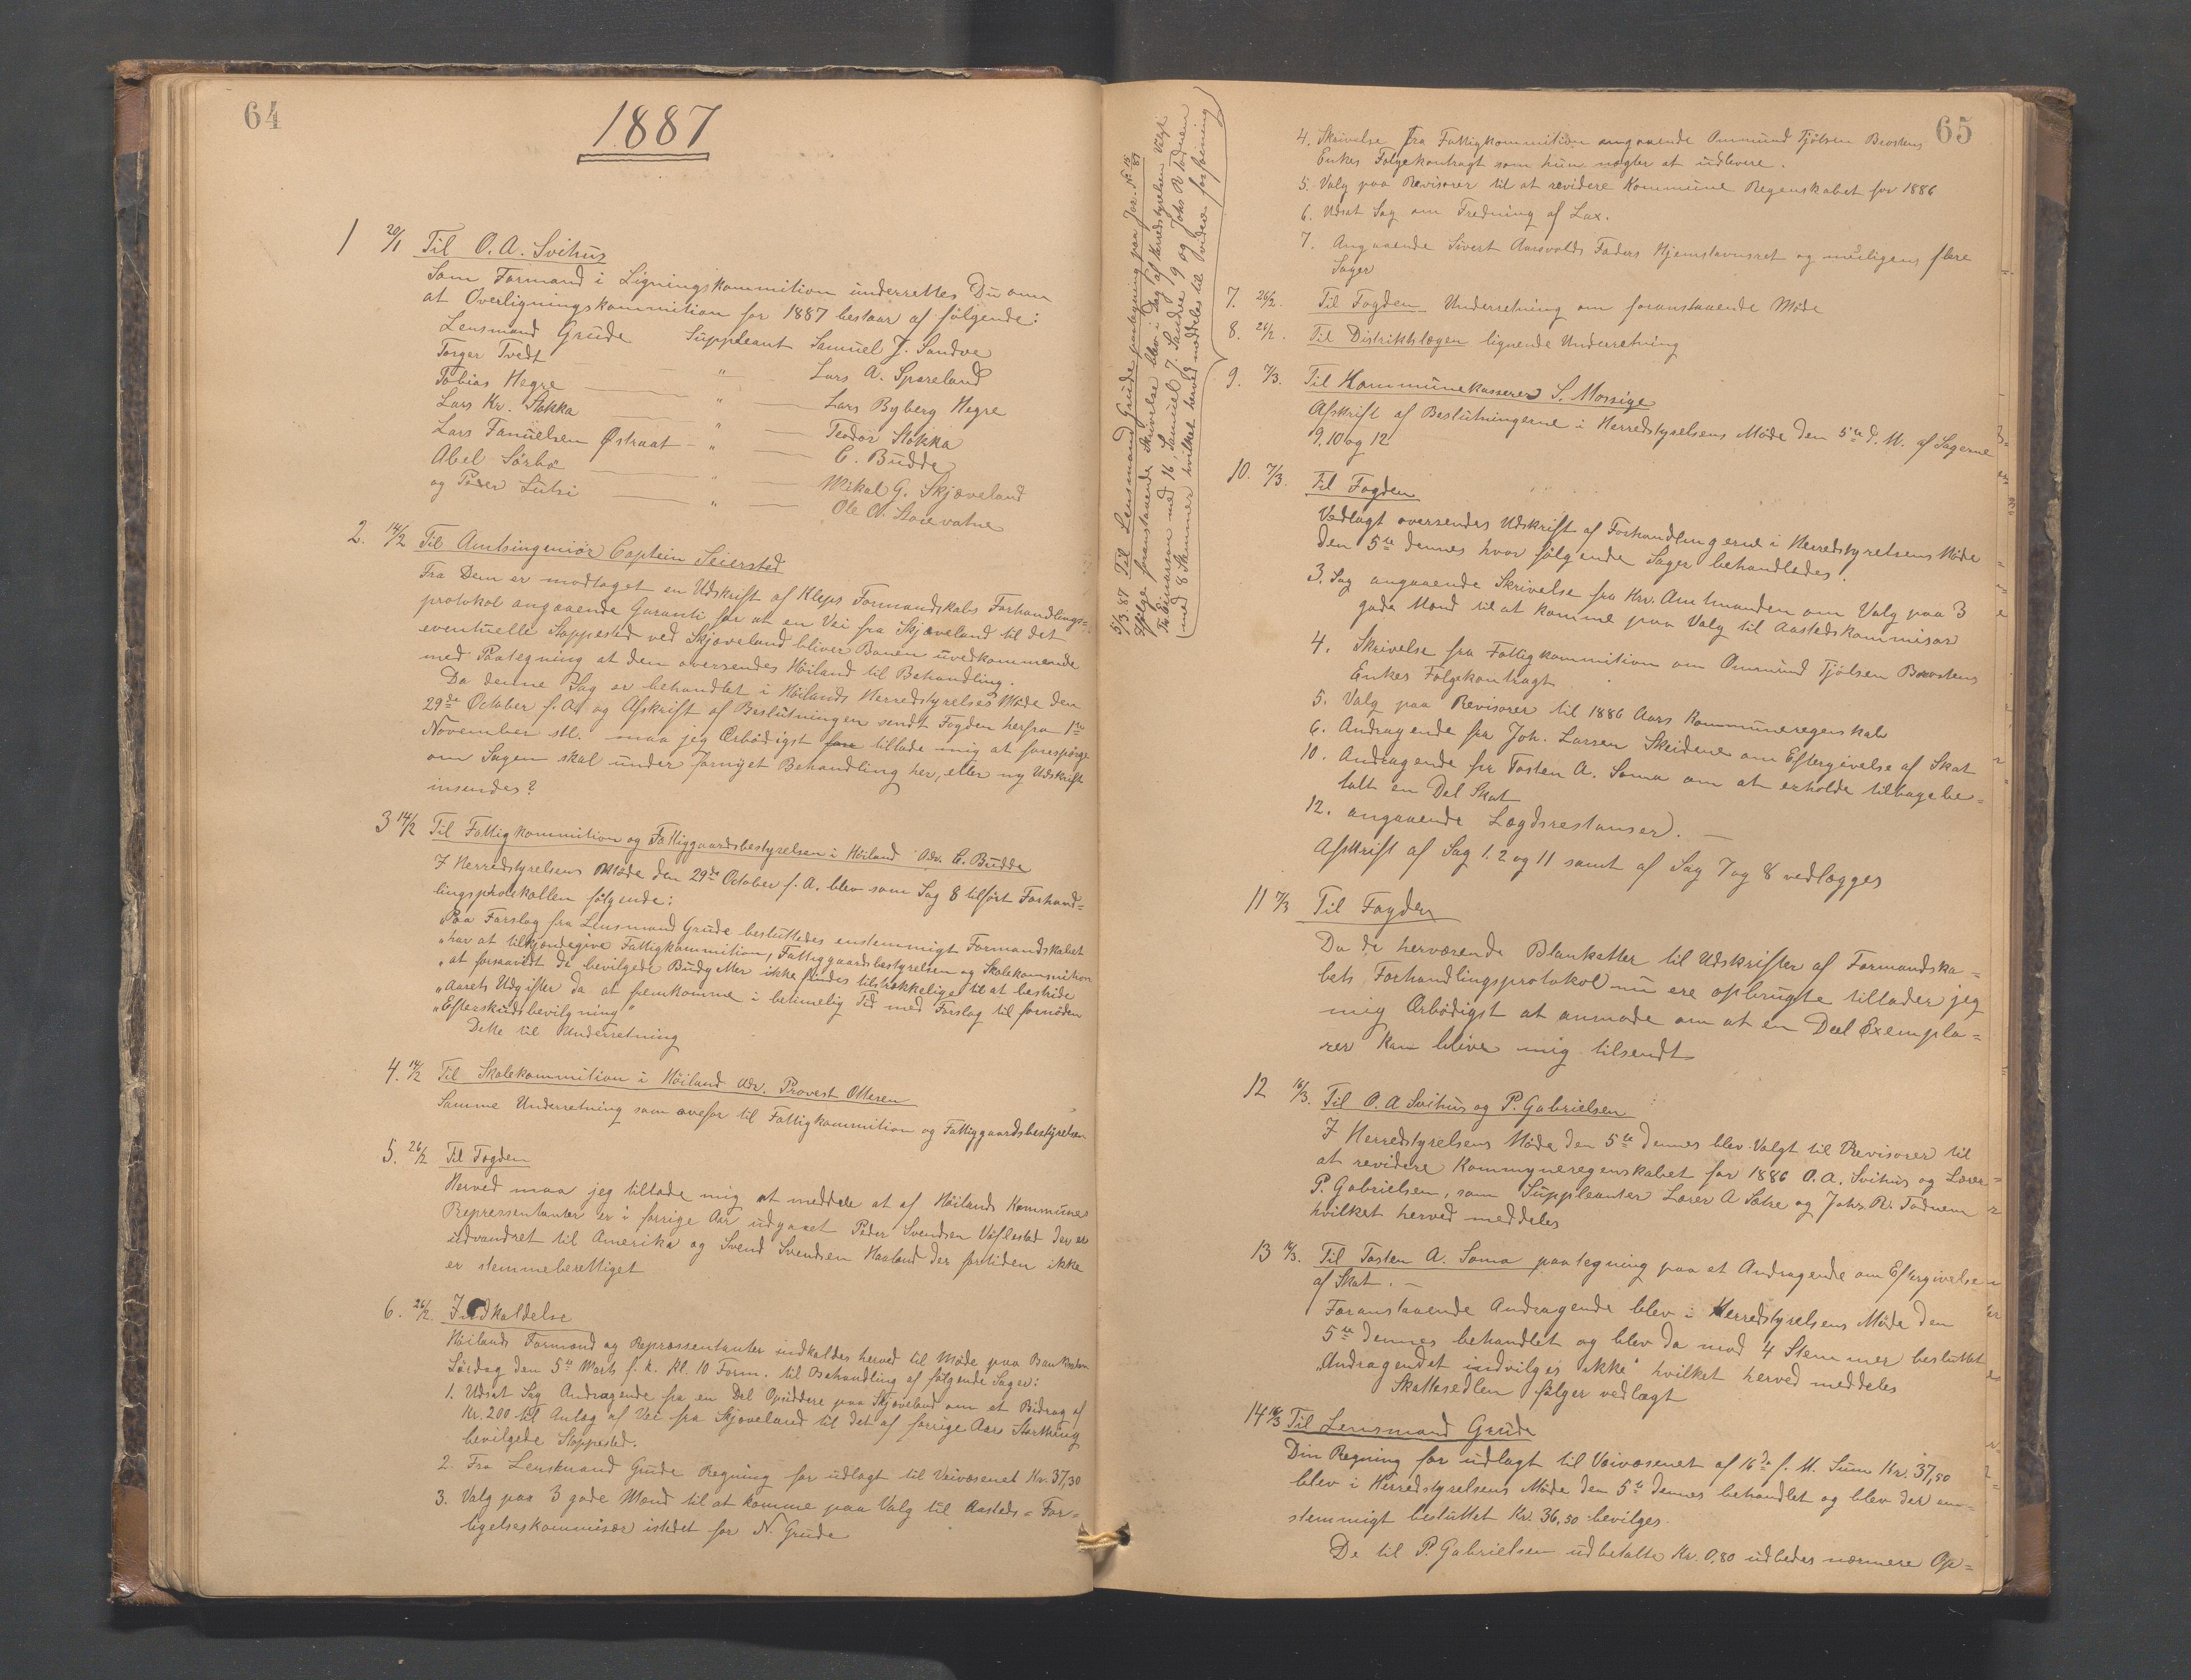 64
1887
1 20/1 Til O. A. Svihus
Som Formand i Ligningskommition underrettes Du om
at Overligningskommition for 1887 bestaar af følgende:
Lensmand Grude Suppleant Samuel J. Sandve
Torger Tvedt " Lars A. Spareland
Tobias Hegre " Lars Byberg Hegre
Lars Kr. Stokka " Teodor Stokka
Lars Tanuelsen Østraat " C. Budde
Abel Sørbø " Mikal G. Skjæveland
og Peder Lutsi " Ole O. Staevatne
2. 14/2 Til Amtsingeniör Captein Seiersted
Fra Dem er modtaget en Udskrift af Kleps Formandskabs Forhandlings=
protokol angaaende Garanti for at en Vei fra Skjæveland til det
eventuelle Stoppested ved Skjæveland bliver Banen uvedkommende
med Paategning at den oversendes Höiland til Behandling.
Da denne Sag er behandlet i Höilands Herredstyrelses Møde den
29de October f. A. og Afskrift af Beslutningen sendt Fogden herfra 1ste
November sl. maa jeg Ærbödigst tillade mig at forespörge
om Sagen skal under fornyet Behandling her, eller ny Udskrift
insendes?
3 14/2 Til Fattigkommition og Fattiggaardsbestyrelsen i Höiland Adr. C. Budde
I Herredstyrelsens Møde den 29de October f. A. blev som Sag 8 tilført Forhand=
lingsprotokollen følgende:
"Paa Forslag fra Lensmand Grude besluttedes enstemmigt Formandskabet
"har at tilkjendegive Fattigkommition, Fattiggaardsbestyrelsen og Skolekommition
"at forsaavidt de bevilgede Budgetter ikke findes tilstrækkelige til at bestride
"Aarets Udgifter da at fremkomme i betimelig Tid med Forslag til fornöden
"Efterskudsbevilgning"
Dette til Underretning
4. 14/2 Til Skolekommition i Höiland Adr. Provest Ottesen
Samme Underretning som ovefor til Fattigkommition og Fattiggaardsbestyrelsen
5. 26/2 Til Fogden
Herved maa jeg tillade mig at meddele at af Höilands Kommunes
Repressentanter er i forrige Aar udgaaet Peder Svendsen Vaflestad der er
udvandret til Amerika og Svend Svendsen Haaland der fortiden ikke
er stemmeberettiget
6. 26/2. Indkaldelse
Höilands Formand og Repræssentanter indkaldes herved til Møde paa Bankebakken
Lördag den 5te Marts f. k. Kl. 10 Form. til Behandling af følgende Sager:
1. Udsat Sag Andragende fra en Del Opsiddere paa Skjæveland om et Bidrag af
Kr. 200 til Anlæg af Vei fra Skjæveland til det af forrige Aars Storthing
bevilgede Stoppested.
2. Fra Lensmand Grude Regning for udlagt til Veivæsenet Kr. 37,30
3. Valg paa 3 gode Mænd til at komme paa Valg til Aasteds= For=
ligelseskommisær istedet for N. Grude
5/3 87 Til Lensmand Grude paategning paa Jor. No 15/87
Ifølge foranstaaende Skrivelse blev i Dag af Herredstyrelsen Valgt
T. Einarson med 16, Samuel J. Sandve 9 og Johs R Todnem
med 8 Stemmer hvilket herved meddeles til videre forføining
65
4. Skrivelse fra Fattigkommition angaaende Ommund Tjölsen Brostens
Enkes Følgekontragt som hun nægter at udlevere.
5. Valg paa Revisorer til at revidere Kommune Regenskabet for 1886
6. Udsat Sag om Fredning af Lax.
7. Angaaende Sivert Aarsvolds Faders Hjemstavnsret og muligens flere
Sager
7. 26/2. Til Fogden Underretning om foranstaaende Møde
8. 26/2. Til Distriktslægen lignende Underretning
9. 7/3. Til Kommunekasserer S. Mossige
Afskrift af Beslutningerne i Herredstyrelsens Møde den 5te d. M. af Sagerne
9, 10 og 12
10. 7/3. Til Fogden
Vedlagt oversendes Udskrift af Forhandlingerne i Herredstyrelsens Møde
den 5te dennes hvor følgende Sager behandledes.
3. Sag angaaende Skrivelse fra Hrr. Amtmanden om Valg paa 3
gode Mænd til at komme paa Valg til Aastedskommisær
4. Skrivelse fra Fattigkommition om Ommund Tjölsen Brostens
Enkes Følgekontragt
5. Valg paa Revisorer til 1886 Aars Kommuneregenskab
6. Andragende fra Joh. Larsen Skeidene om Eftergivelse af Skat
10. Andragende fra Tosten A. Soma om at erholde tilbagebe=
talt en Del Skat
12. angaaende Lægdsrestanser.
Afskrift af Sag 1. 2 og 11 samt af Sag 7 og 8 vedlægges
11 7/3 Til Fogden
Da de herværende Blanketter til Udskrifter af Formandska=
bets Forhandlingsprotokol nu ere opbrugte tillader jeg
mig Ærbödigst at anmode om at en Deel Exempla=
rer kan blive mig tilsendt
12 16/3. Til O. A Svihus og P. Gabrielsen
I Herredstyrelsens Møde den 5te dennes blev Valgt til Revisorer til
at revidere Kommyneregenskabet for 1886 O. A. Svihus og Lærer
P. Gabrielsen, som Suppleanter Lærer A Sætre og Johs. R. Todnem
hvilket herved meddeles
13 16/3. Til Tosten A. Soma paategning paa et Andragende om Eftergivelse
af Skat.
Foranstaaende Andragende blev i Herredstyrelsens Møde den
5te dennes behandlet og blev da mod 4 Stemmer besluttet
"Andragendet indvilges ikke" hvilket herved meddeles
Skattesedlen følger vedlagt
14 16/3 Til Lensmand Grude
Din Regning for udlagt til Veivæsenet af 16de f. M. Sum Kr. 37,50
blev i Herredstyrelsens Møde den 5te dennes behandlet og blev der en=
stemmigt besluttet Kr. 36,50 bevilges.
De til P. Gabrielsen udbetalte Kr. 0,80 udbedes nærmere Op=